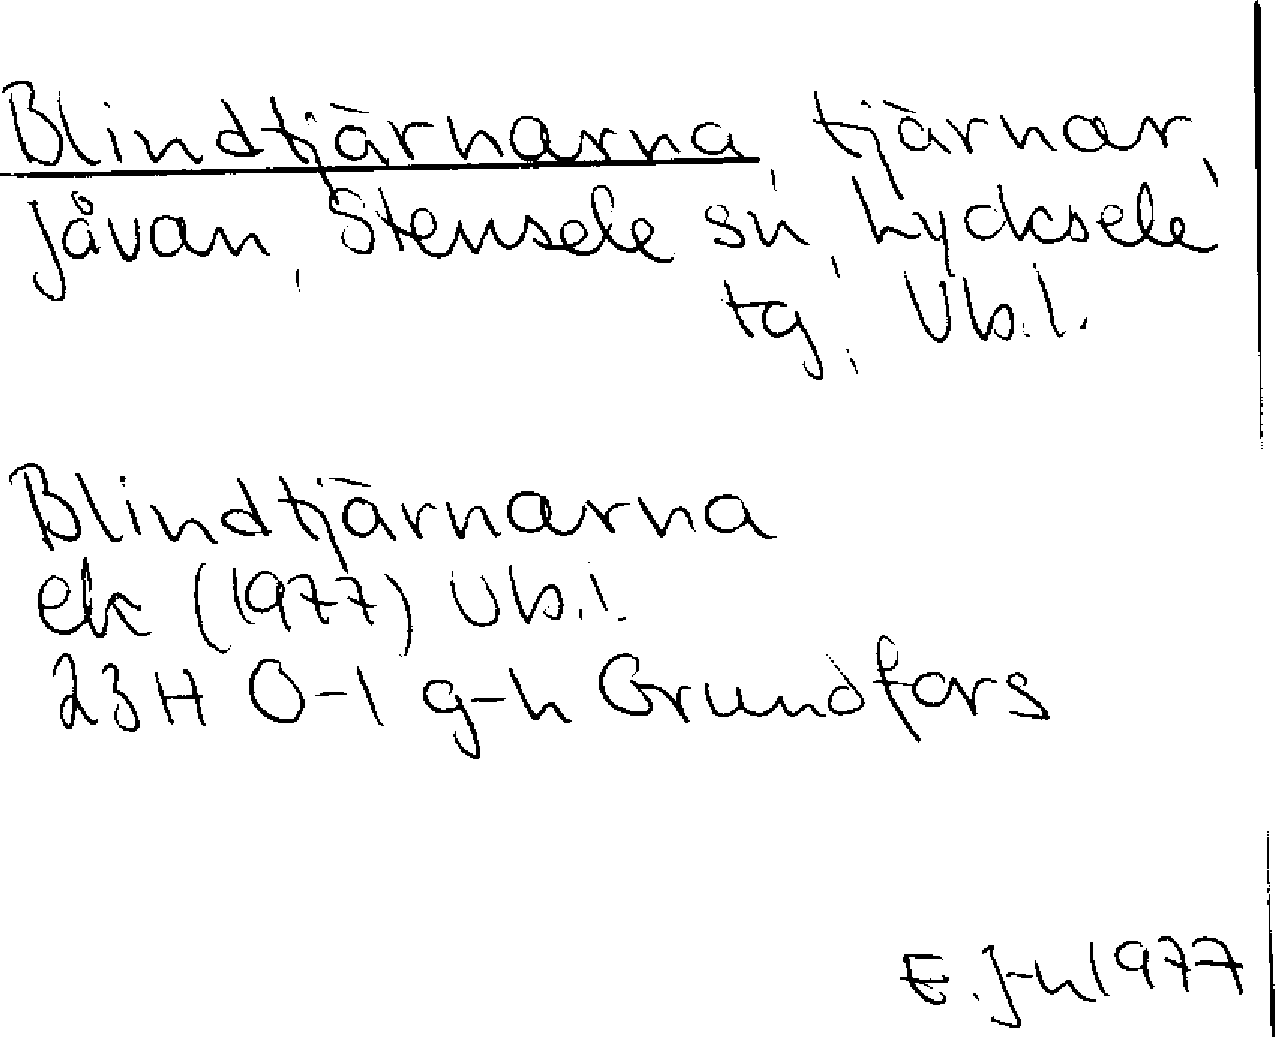 Blindtjärnarna, tjärnar,
Jåvan, Stensele sn, Lycksele
tg, Vb.l.
Blindtjärnarna
ek (1977) Vb.l.
23H 0-1 g-h Grundfors
E. J-n 1977